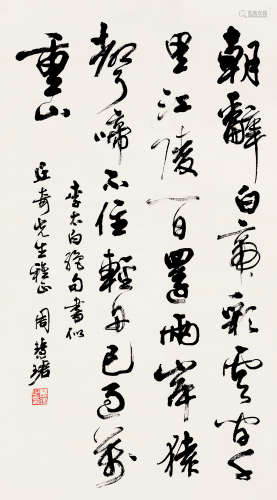 朝辭白帝彩雲間千
里江陵一日還兩岸猿
聲啼不住輕舟已過萬
重山
李太白絕句書似
奇先生雅正 周慧珺